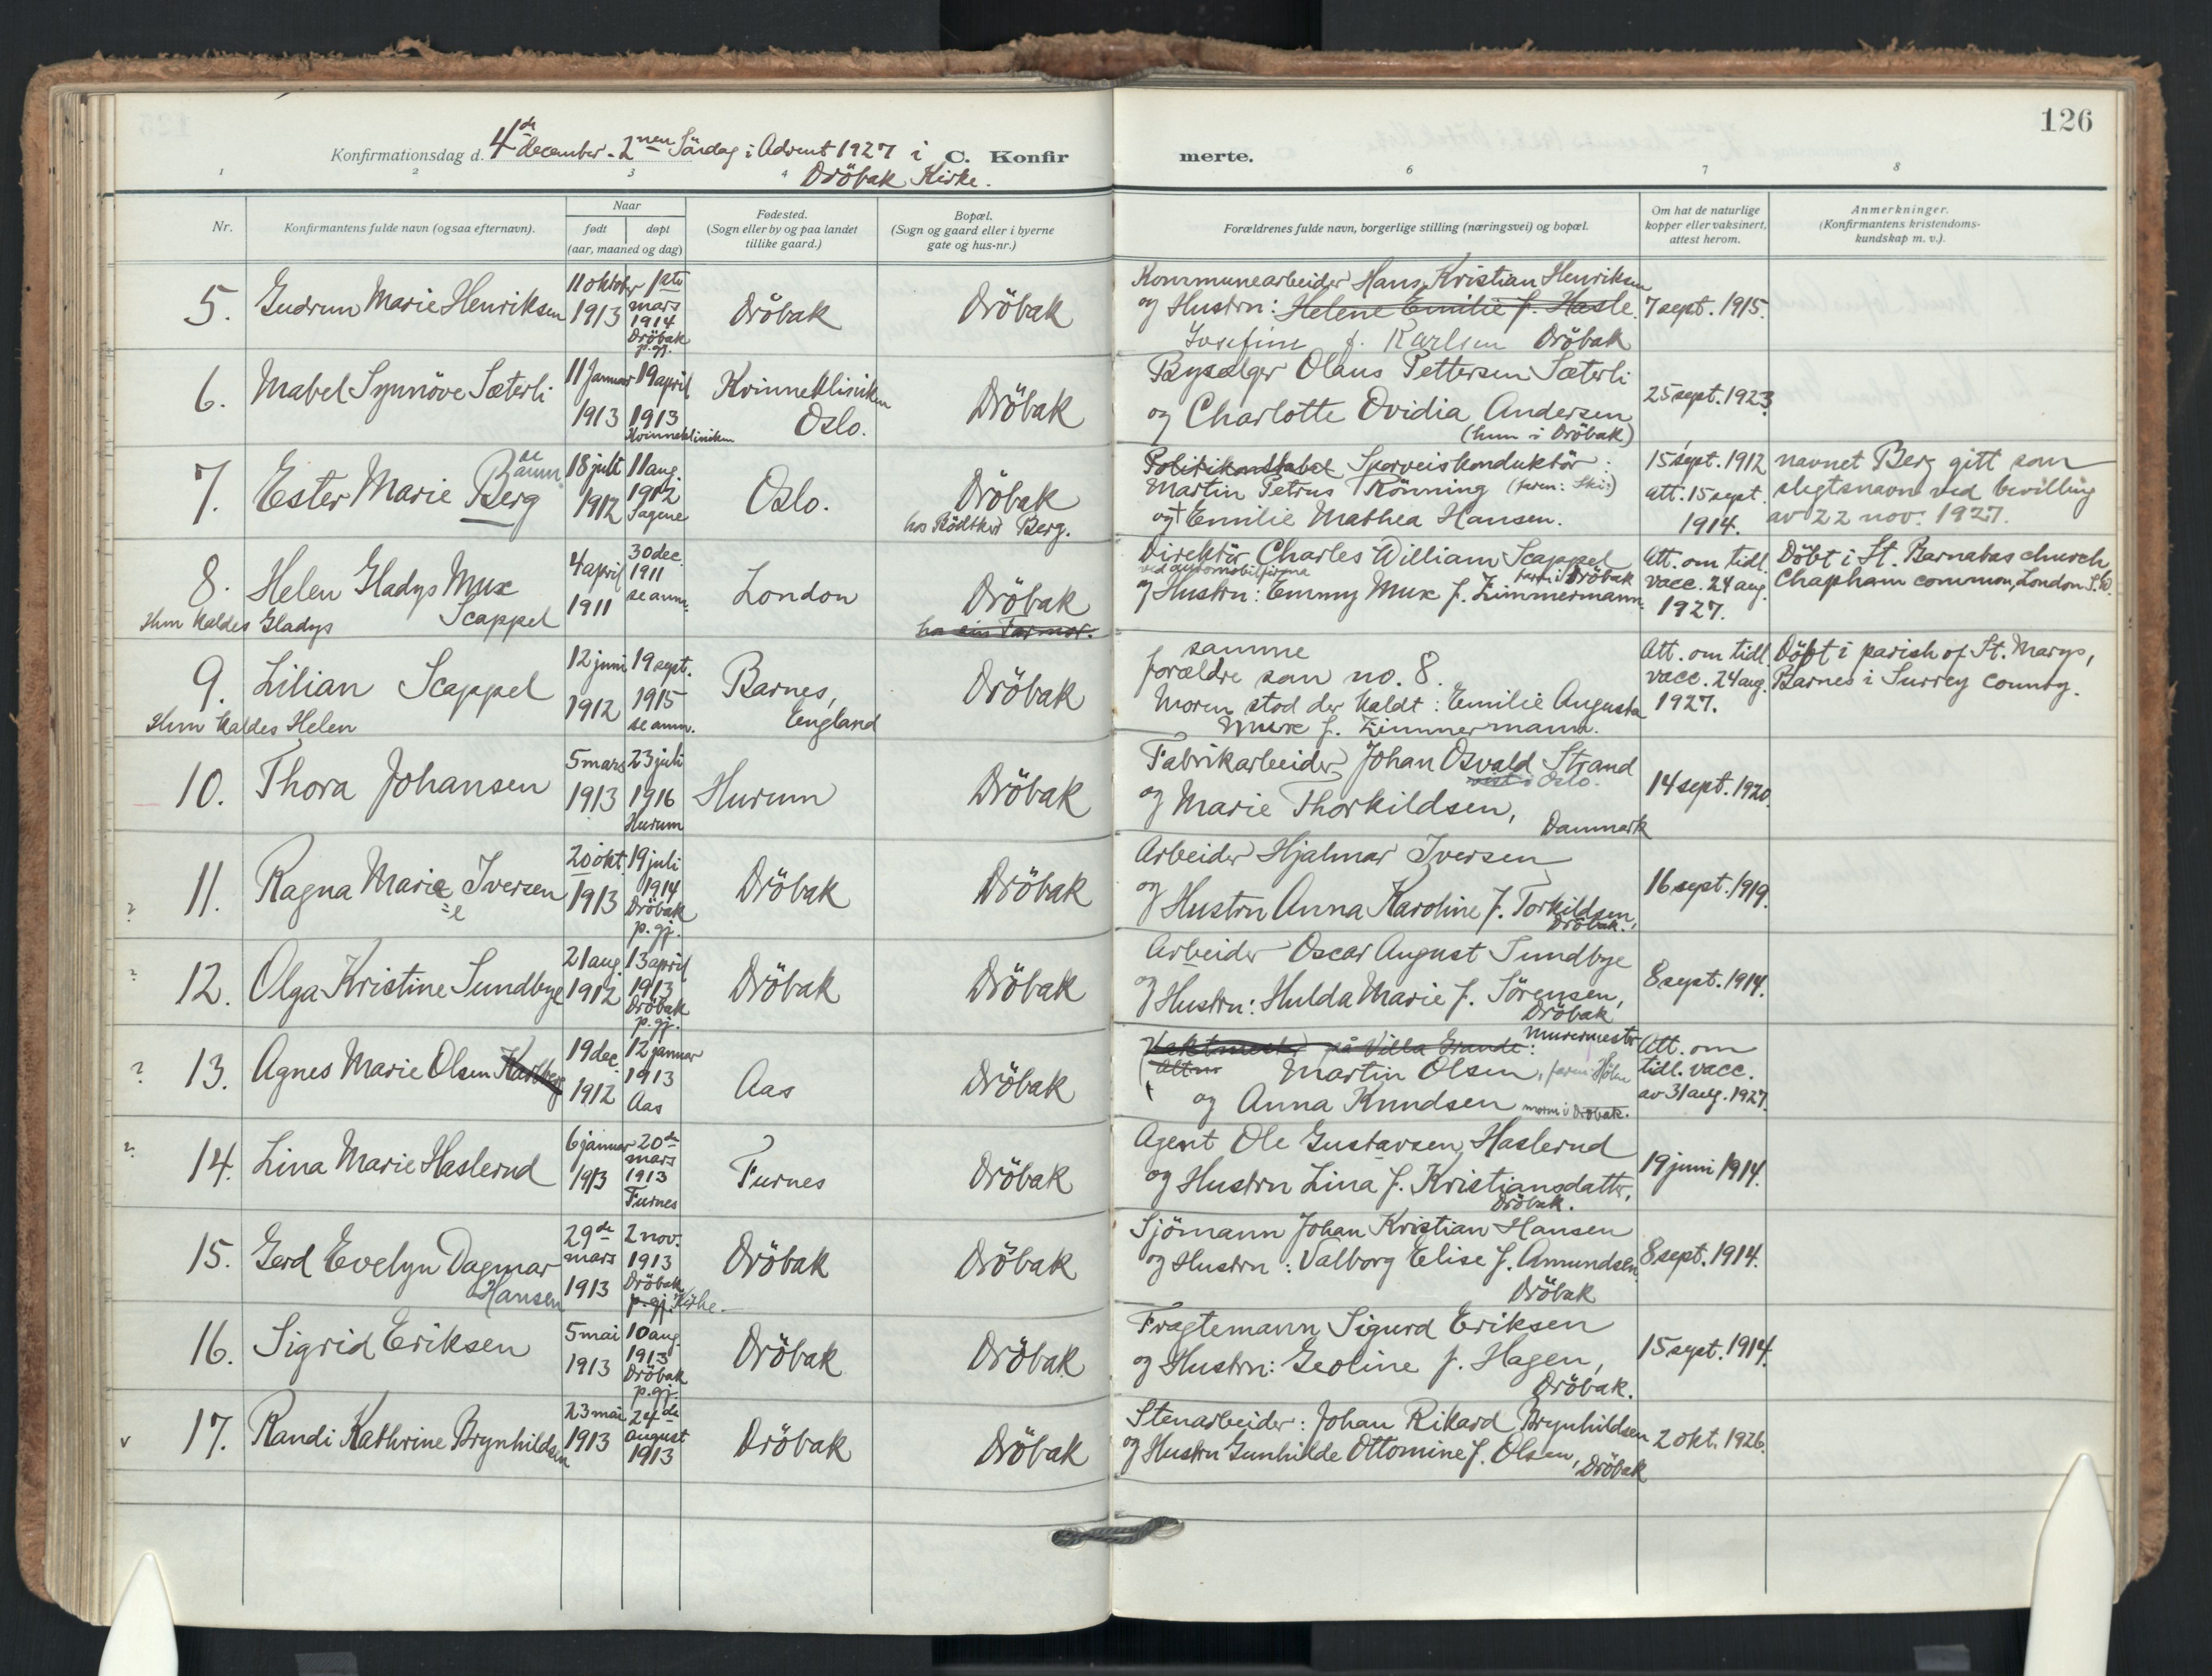 126
Konfirmationsdag d. 4de december - 2nen Söndag i Advent 1927 i C. Konfir merte.
Dröbak Kirke.
1 2 3 4 6 7 8
Nr.
Konfirmantens fulde navn (ogsaa efternavn).
Naar
født døpt
(aar, maaned og dag)
Fødested.
(Sogn eller by og paa landet
tillike gaard.)
Bopæl.
(Sogn og gaard eller i byerne
gate og hus-nr.)
Forældrenes fulde navn, borgerlige stilling (næringsvei) og bopæl.
Om hat de naturlige
kopper eller vaksinert,
attest herom.
Anmerkninger.
(Konfirmantens kristendoms-
kundskap m. v.).
5. Gudrun Marie Henriksen
11 oktober 1913
1ste mars 1914 Dröbak p.gj.
Dröbak
Dröbak
Kommunearbeider Hans Kristian Henriksen
og Hustru: Helene Emilie f. Hasle.
Josefine f. Karlsen Dröbak
7 sept. 1915.
6. Mabel Synnöve Sæterli
11 Januar 1913
19 april 1913 Kvinnekliniken
Kvinnekliniken
Oslo.
Dröbak
Bysælger Olaus Pettersen Sæterli
og Charlotte Ovidia Andersen
(hun i Dröbak)
25 sept. 1923.
7. Ester Marie Berg
se anm.
18 juli 1912
11 aug. 1912 Sagene
Oslo.
Dröbak
hos Bödtker Berg.
Politikonstabel Sporveiskonduktör:
Martin Petrus Rönning (faren: Ski:)
og Emilie Mathea Hansen.
15 sept. 1912
att. 15 sept.
1914.
navnet Berg gitt som
slegtsnavn ved bevilling
av 22 nov. 1927.
8. Helen Gladys Mux
Scappel
Hun kaldes Gladys
4 april 1911
30 dec. 1911 se anm.
London
Dröbak
hos sin Farmor.
Direktör Charles William Scappel
ved automobilfirma farm i Dröbak
og Hustru: Emmy Mux f. Zimmermann.
Att. om tidl.
vacc. 24 aug.
1927.
Döbt i St. Barnabas church,
Chapham common, London S.W.
9. Lilian Scappel
Hun kaldes Helen
12 juni 1912
19 sept. 1915 se anm.
Barnes,
England
Dröbak
samme
forældre som no. 8.
Moren stod der kaldt: Emilie Augusta
Mux f. Zimmermann.
Att. om tidl.
vacc. 24 aug.
1927.
Döbt i parish of St. Marys,
Barnes i Surrey County.
10. Thora Johansen
5 mars 1913
23 juli 1916 Hurum
Hurum
Dröbak
Fabrikarbeider Johan Osvald Strand
vist i Oslo.
og Marie Thorkildsen,
Danmark
14 sept. 1920.
11. Ragna Marie Iversen
= e
?
20 okt. 1913
19 juli 1914 Dröbak p.gj.
Dröbak
Dröbak
Arbeider Hjalmar Iversen
og Hustru Anna Karoline f. Torkildsen,
Dröbak.
16 sept. 1919.
12. Olga Kristine Sundbye
?
21 aug. 1912
13 april 1913 Dröbak p.gj.
Dröbak
Dröbak
Arbeider Oscar August Sundbye
og Hustru: Hulda Marie f. Sörensen,
Dröbak
8 sept. 1914.
13. Agnes Marie Olsen
?
19 dec. 1912
12 januar 1913 Aas
Aas
Dröbak
Vaktmester på Villa Grande: Murermester
Martin Olsen, faren: Hölen
og Anna Knudsen moren i Dröbak.
Att. om
tidl. vacc.
av 31 aug. 1927.
14. Lina Marie Haslerud
?
6 januar 1913
20de mars 1913 Furnes
Furnes
Dröbak
Agent Ole Gustavsen Haslerud
og Hustru Lina f. Kristiansdatter,
Dröbak.
19 juni 1914.
15. Gerd Evelyn Dagmar
Hansen
29de mars 1913
2 nov. 1913 Dröbak p.gj. Kirke.
Dröbak
Dröbak
Sjömann Johan Kristian Hansen
og Hustru: Valborg Elise f. Amundsen.
Dröbak
8 sept. 1914.
16. Sigrid Eriksen
5 mai 1913
10 aug. 1913 Dröbak p.gj.
Dröbak
Dröbak
Fragtemann Sigurd Eriksen
og Hustru: Georline f. Hagen,
Dröbak.
15 sept. 1914.
17. Randi Kathrine Brynhildsen
v
23 mai 1913
24de august 1913
Dröbak
Dröbak
Stenarbeider: Johan Rikard Brynhildsen
og Hustru Gunhilde Ottomine f. Olsen,
Dröbak
2 okt. 1926.